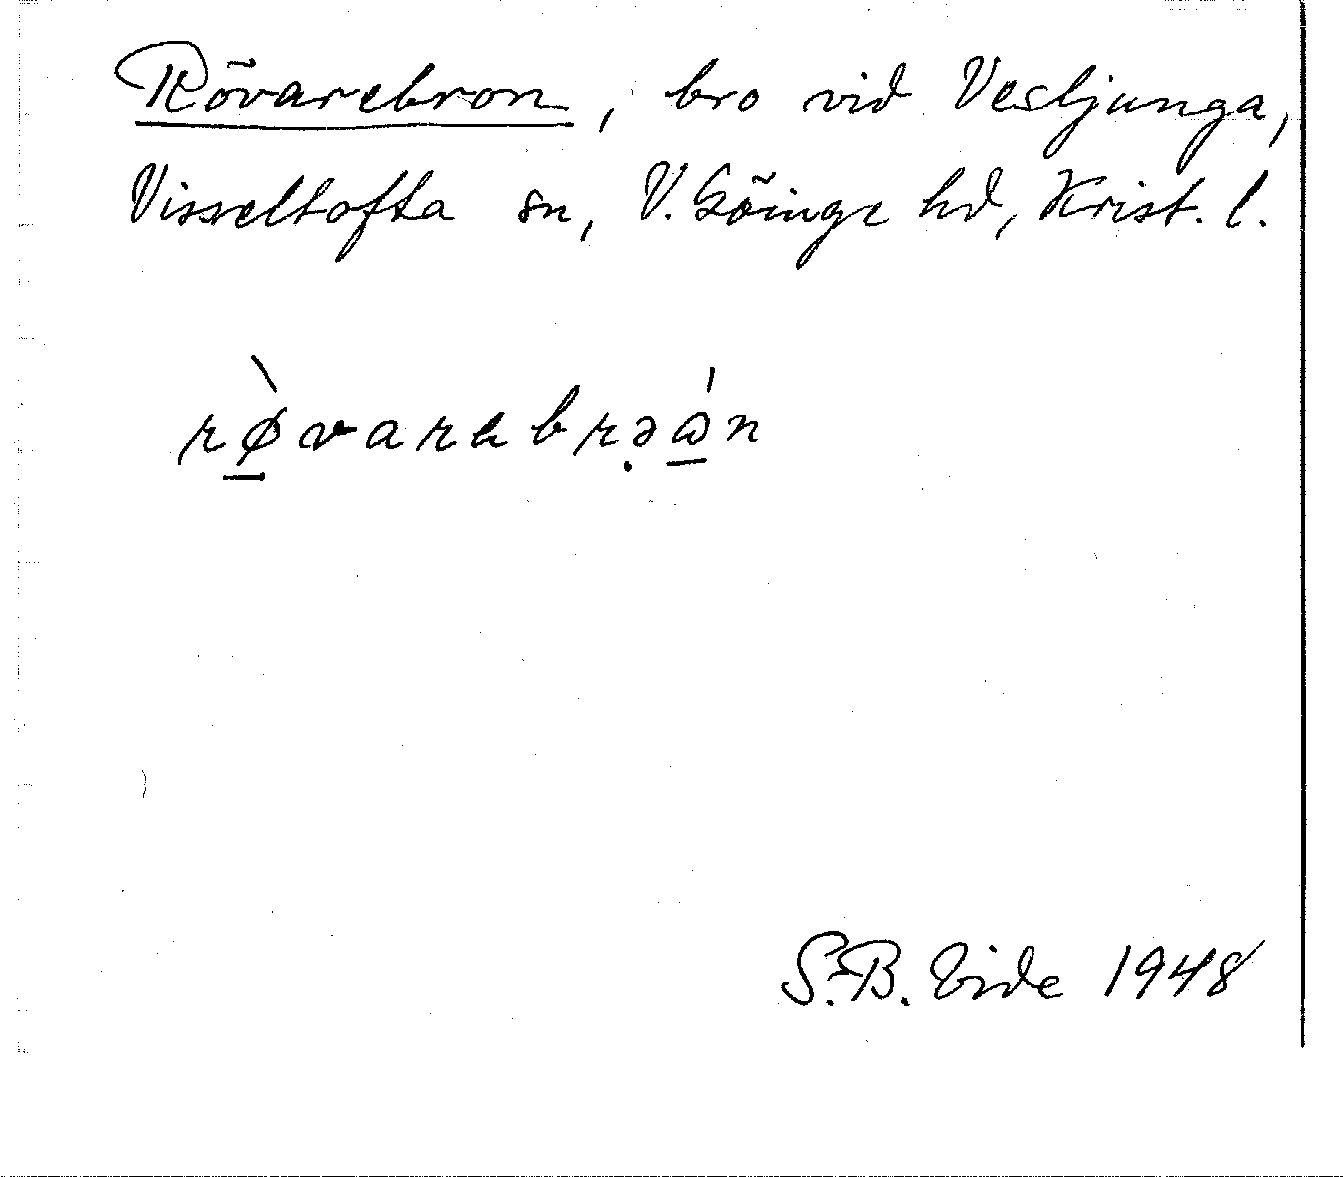 Rövarebron, bro vid Vesljunga,
Visseltofta sn, V. Göinge hd, Krist. l.
rø̀varebrəώ̣n
S. B. Vide 1948